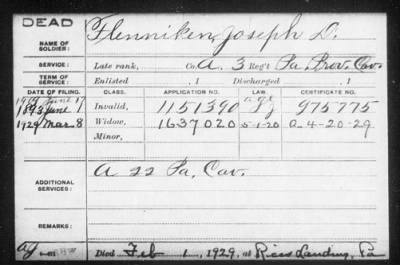 DEAD
NAME OF SOLDIER: Flenniken, Joseph D.
SERVICE: Late rank, Co. A. 3 Reg't Pa. Prov. Cav.
TERM OF SERVICE: Enlisted , 1 Discharged , 1
DATE OF FILING. CLASS. APPLICATION NO. LAW. CERTIFICATE NO.
June 17 age
June 1 Invalid, 1151390 975775
1929 Mar. 8 Widow, 1637020 5-1-20 A-4-20-29
Minor,
ADDITIONAL SERVICES: A 22 Pa. Cav.
REMARKS:
Died Feb 1, 1929, at Rices Landing, Pa